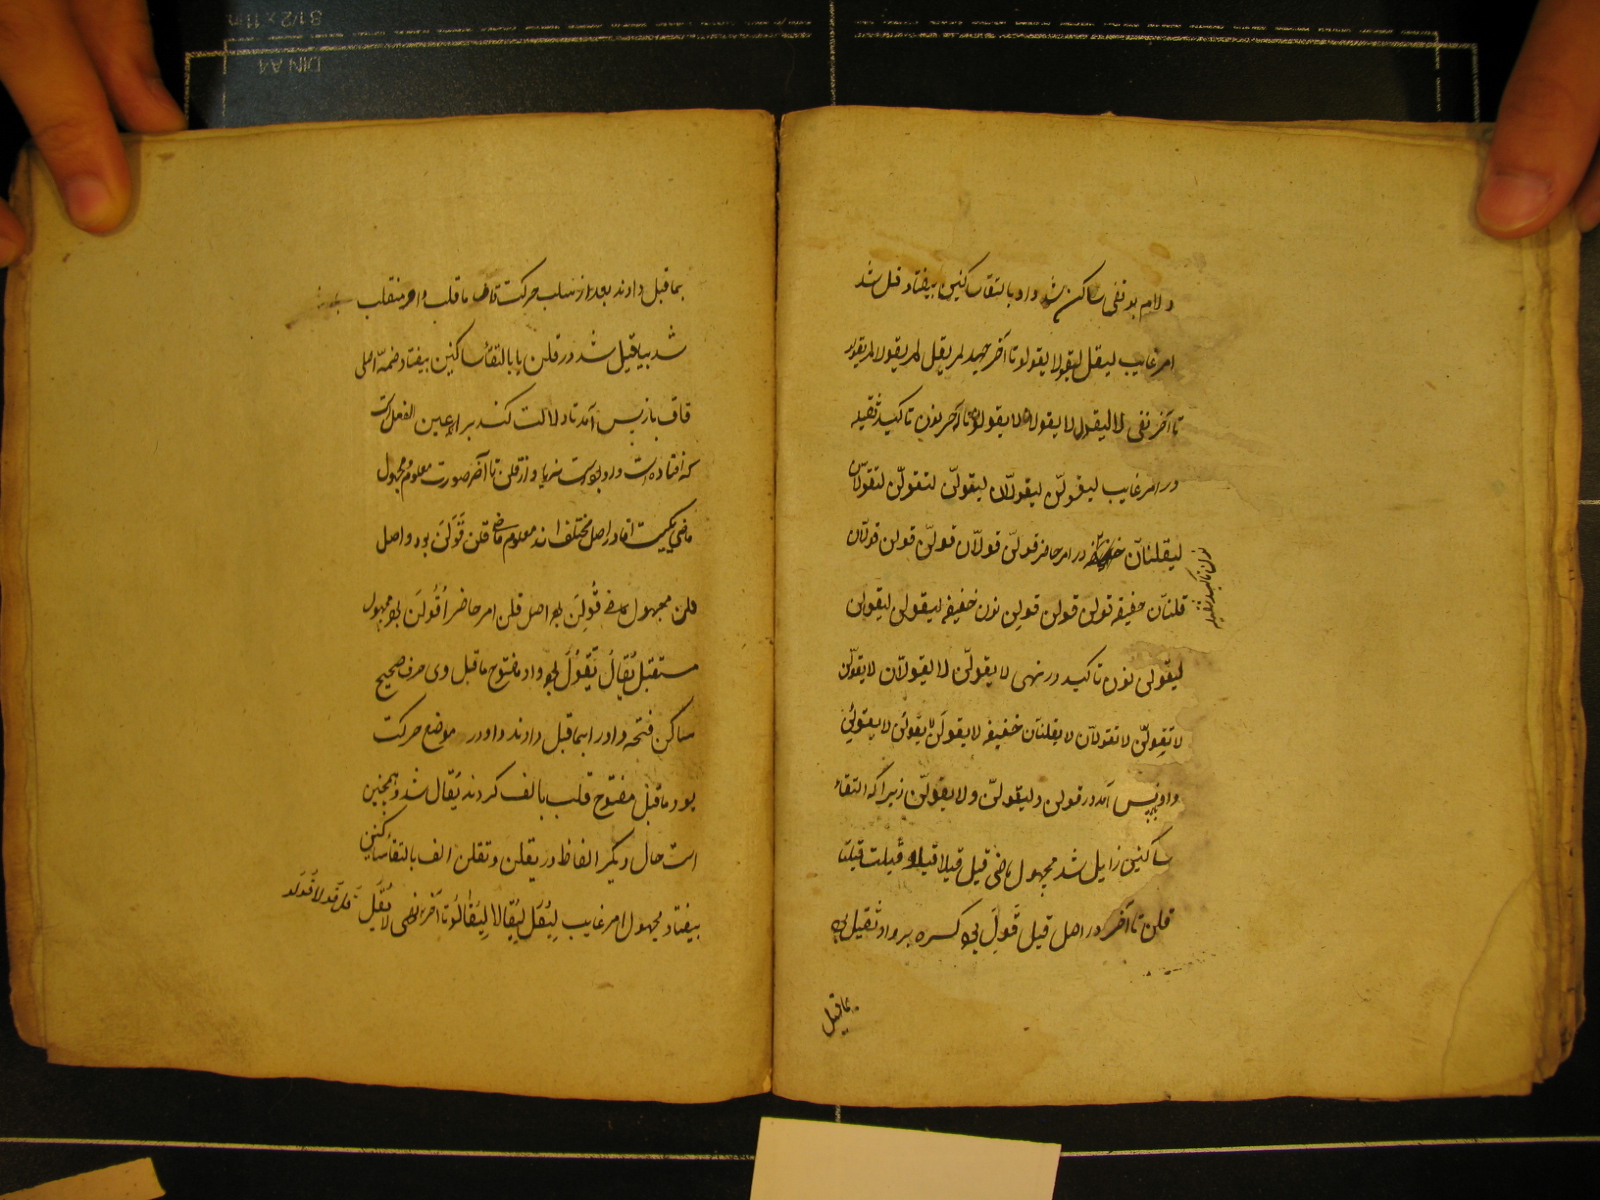 و لام بوقفی ساکن شد واو بالتقاء ساکنین بیفتاد قل شد
امر غایب لیقل لیقولا لیقولوا تا آخر جحد لم یقل لم یقولا لم یقولوا
تا آخر نفی لا یقول لا یقولان لا یقولون تا آخر نون تاکید ثقیله
در امر غایب لیقولنّ لیقولانّ لیقولنّ لتقولنّ لتقولانّ
لیقلنانّ در امر حاضر قولنّ قولانّ قولنّ قولن قولانّ
نون تاکید ثقیله
قلنانّ خفیفه قولن قولن قولن نون خفیفه لیقولن لیقولن
لیقولن نون تاکید در نهی لا یقولنّ لا یقولانّ لا یقولنّ
لا تقولنّ لا تقولانّ لا یقلنانّ خفیفه لا یقولن لا یقولن لا یقولن
واو بازپس آمد در قولن و لیقولنّ و لا یقولنّ زیرا که التقاء
ساکنین زایل شد مجهول ماضی قیل قیلا قیلوا قیلت قیلتا
قلن تا آخر در اصل قیل قُوِلَ بود کسره بر واو ثقیل بود
بماقبل
بماقبل دادند بعد از سلب حرکت قاف ماقلب واو منقلب
شد بیا قیل شد در قلن یا بالتقاء ساکنین بیفتاد ضمهٔ اصلی
قاف بازپس آمد تا دلالت کند بر عین الفعل است
که افتاده است واو بوده است نه یا و از قلن تا آخر صورت معلوم و مجهول
ماضی یکیست اما در اصل مختلف اند معلوم ماضی قلن قَوَلنَ بود و اصل
قلن مجهول ماضی قُوِلنَ بود اصل قلن امر حاضر اُقوُلنَ بود مجهول
مستقبل یُقالُ یُقوَلُ بود واو مفتوح ماقبل وی حرف صحیح
ساکن فتحه واو را بماقبل دادند واو در موضع حرکت
بود ماقبل مفتوح قلب بالف کردند یقال شد و همچنین
است حال دیگر الفاظ در یقلن و تقلن الف بالتقاء ساکنین
بیفتاد مجهول امر غایب لِیُقَل لِیُقالا لِیُقالُوا تا آخر نهی لا یُقَل